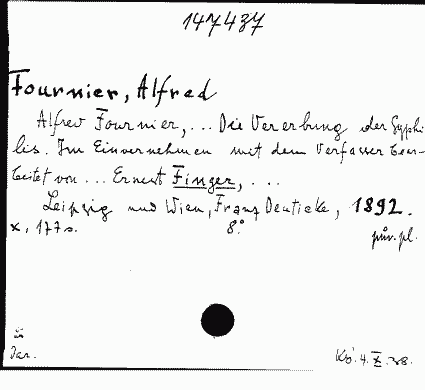 147437
Fournier, Alfred
Alfred Fournier, ... Die Vererbung der Syphi-
lis. Im Einvernehmen mit dem Verfasser bear-
beitet von ... Ernest Finger, ...
Leipzig und Wien, Franz Deuticke, 1892.
X, 177 s. 8°.
pův. pl.
Dar.